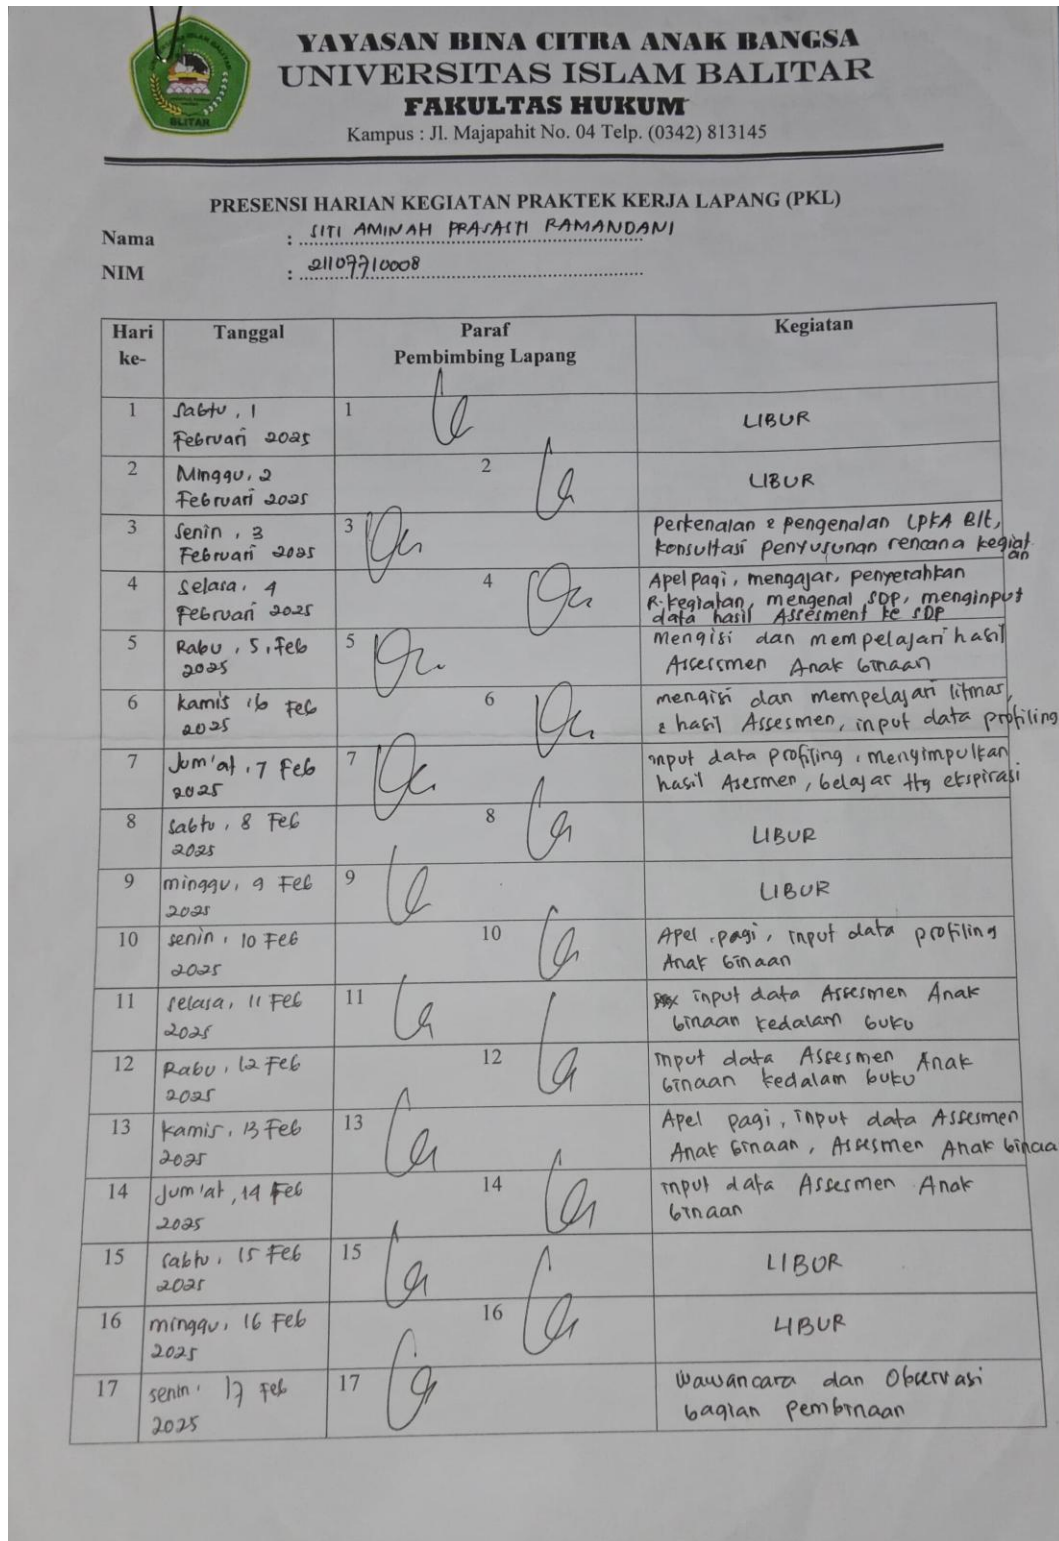 BLITAR
YAYASAN BINA CITRA ANAK BANGSA
UNIVERSITAS ISLAM BALITAR
FAKULTAS HUKUM
Kampus : Jl. Majapahit No. 04 Telp. (0342) 813145
PRESENSI HARIAN KEGIATAN PRAKTEK KERJA LAPANG (PKL)
Nama : SITI AMINAH PRASASTI RAMANDANI
NIM : 21107710008
Hari Tanggal Paraf Kegiatan
ke- Pembimbing Lapang
1 Sabtu, 1 1 LIBUR
Februari 2025
2 Minggu, 2 2 LIBUR
Februari 2025
3 Senin, 3 3 Perkenalan & pengenalan LPKA Blt,
Februari 2025 konsultasi penyusunan rencana kegiat
an
4 Selasa, 4 4 Apel pagi, mengajar, penyerahkan
Februari 2025 R.kegiatan, mengenal SDP, menginput
data hasil Assesment ke SDP
5 Rabu, 5, Feb 5 Mengisi dan mempelajari hasil
2025 Assessmen Anak binaan
6 kamis, 6 Feb 6 mengisi dan mempelajari litmas,
2025 & hasil Assesmen, input data profiling
7 Jum'at, 7 Feb 7 input data profiling, menyimpulkan
2025 hasil Asesmen, belajar ttg ekspirasi
8 Sabtu, 8 Feb 8 LIBUR
2025
9 minggu, 9 Feb 9 LIBUR
2025
10 senin, 10 Feb 10 Apel pagi, input data profiling
2025 Anak binaan
11 selasa, 11 Feb 11 input data Assesmen Anak
2025 binaan kedalam buku
12 Rabu, 12 Feb 12 input data Assesmen Anak
2025 binaan kedalam buku
13 kamis, 13 Feb 13 Apel pagi, input data Assesmen
2025 Anak binaan, Assesmen Anak binaa
14 Jum'at, 14 Feb 14 input data Assesmen Anak
2025 binaan
15 sabtu, 15 Feb 15 LIBUR
2025
16 minggu, 16 Feb 16 LIBUR
2025
17 senin, 17 Feb 17 wawancara dan Observasi
2025 bagian pembinaan